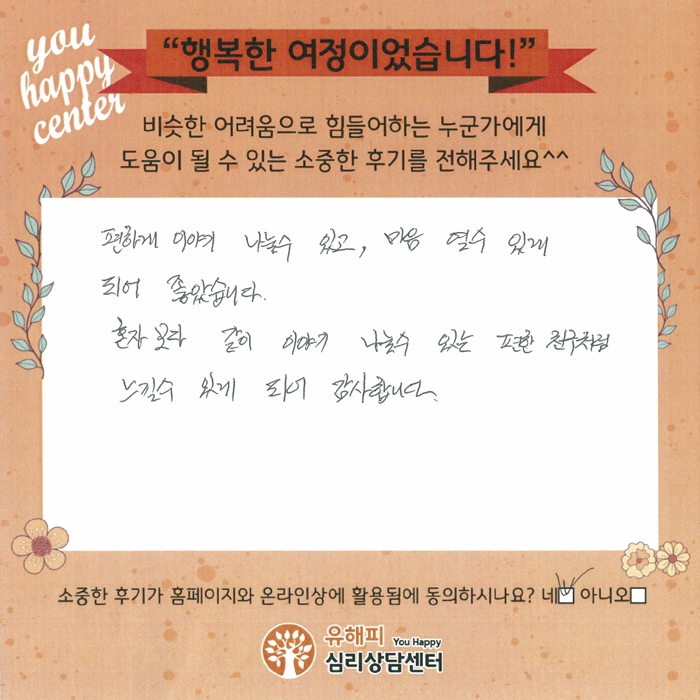 you
happy
center
“행복한 여정이었습니다!”
비슷한 어려움으로 힘들어하는 누군가에게
도움이 될 수 있는 소중한 후기를 전해주세요^^
편하게 이야기 나눌수 있고, 마음 열수 있게
되어 좋았습니다.
혼자 보다 같이 이야기 나눌수 있는 편한 친구처럼
느낄수 있게 되어 감사합니다.
소중한 후기가 홈페이지와 온라인상에 활용됨에 동의하시나요? 네 아니오
유해피 You Happy
심리상담센터